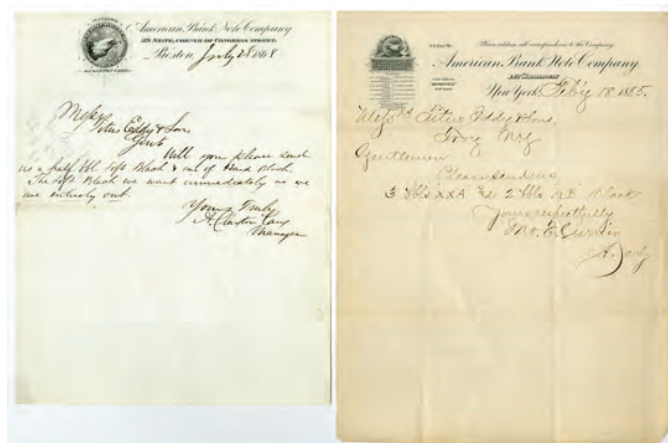 American Bank Note Company
29 STATE, CORNER OF CONGRESS STREET.
Boston, July 28 1868
Mess
Titus Eddy & Son
Gent
Will you please send
us a half bbl Soft Black & one of Hard Black.
The Soft Black we want immediately as we
are entirely out.
Yours Truly
Manager
Please address all correspondence to the Company.
American Bank Note Company
New York, Feb'y 18 1885.
Messrs Titus Eddy & Sons.
Troy N.Y
Gentlemen
Please send us
3 bbls XXA 2 bbls Black
Yours respectfully